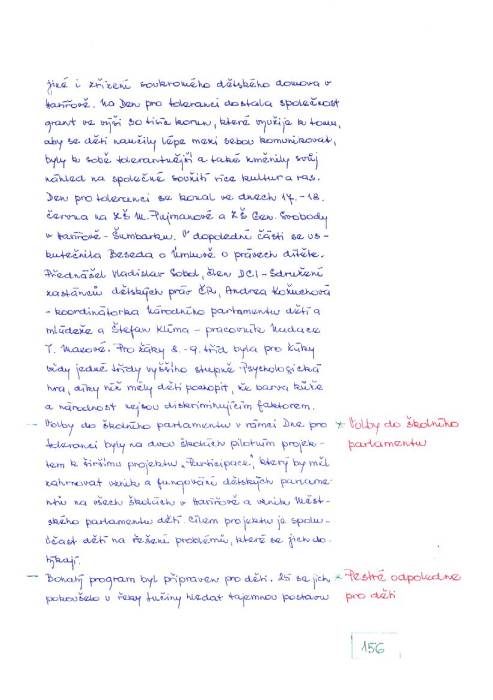 jiné i zřízení soukromého dětského domova v
Havířově. Na Den pro toleranci dostala společnost
grant ve výši 30 tisíc korun, které využije k tomu,
aby se děti naučily lépe mezi sebou komunikovat,
byly k sobě tolerantnější a také změnily svůj
náhled na společné soužití více kultur a ras.
Den pro toleranci se konal ve dnech 17. - 18.
června na ZŠ M. Pujmanové a ZŠ Gen. Svobody
v Havířově - Šumbarku. V dopolední části se us-
kutečnila Beseda o Úmluvě o právech dítěte.
Přednášel Vladislav Sobol, člen DCI - Sdružení
zastánců dětských práv ČR, Andrea Kožuchová
- koordinátorka Národního parlamentu dětí a
mládeže a Štefan Klíma - pracovník Nadace
T. Maxové. Pro žáky 8. - 9. tříd byla pro žáky
vždy jedné třídy vyššího stupně Psychologická
hra, díky níž měly děti pochopit, že barva kůže
a národnost nejsou diskriminujícím faktorem.
- Volby do školního parlamentu v rámci Dne pro
toleranci byly na dvou školách pilotním projek-
tem k širšímu projektu „Participace", který by měl
zahrnovat vznik a fungování dětských parlame-
ntů na všech školách v Havířově a vznik Měst-
ského parlamentu dětí. Cílem projektu je spolu-
účast dětí na řešení problémů, které se jich do-
týkají.
- Bohatý program byl připraven pro děti. 25 se jich
pokoušelo u řeky Lučiny hledat tajemnou postavu
* Volby do školního
parlamentu
* Pestré odpoledne
pro děti
156